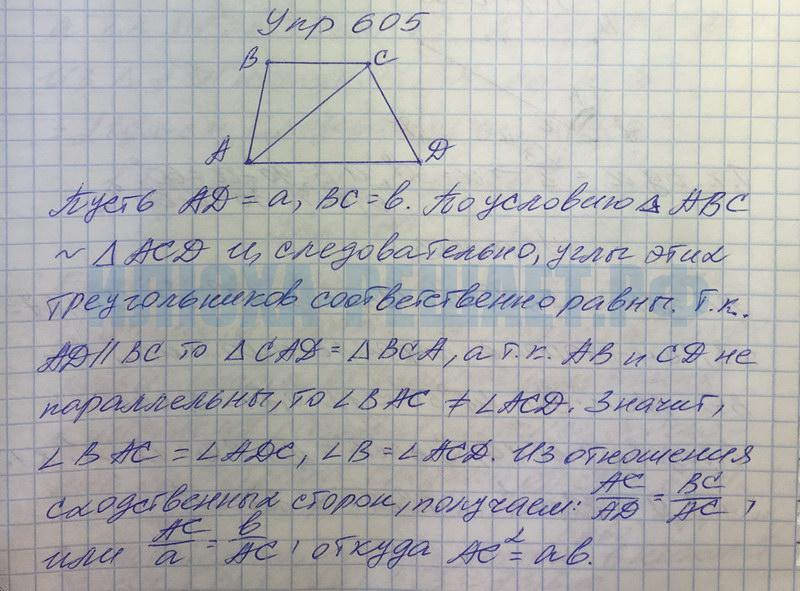 Упр 605
B C
A D
Пусть AD = a, BC = в. По условию △ ABC
~ △ ACD и, следовательно, углы этих
треугольников соответственно равны. Т.к.
AD || BC то △ CAD = △ BCA, а т.к. AB и CD не
параллельны, то ∠ BAC ≠ ∠ACD. Значит,
∠ BAC = ∠ADC, ∠ B = ∠ACD. Из отношения
сходственных сторон, получаем: AC/AD = BC/AC,
или AC/a = в/AC, откуда AC² = aв.